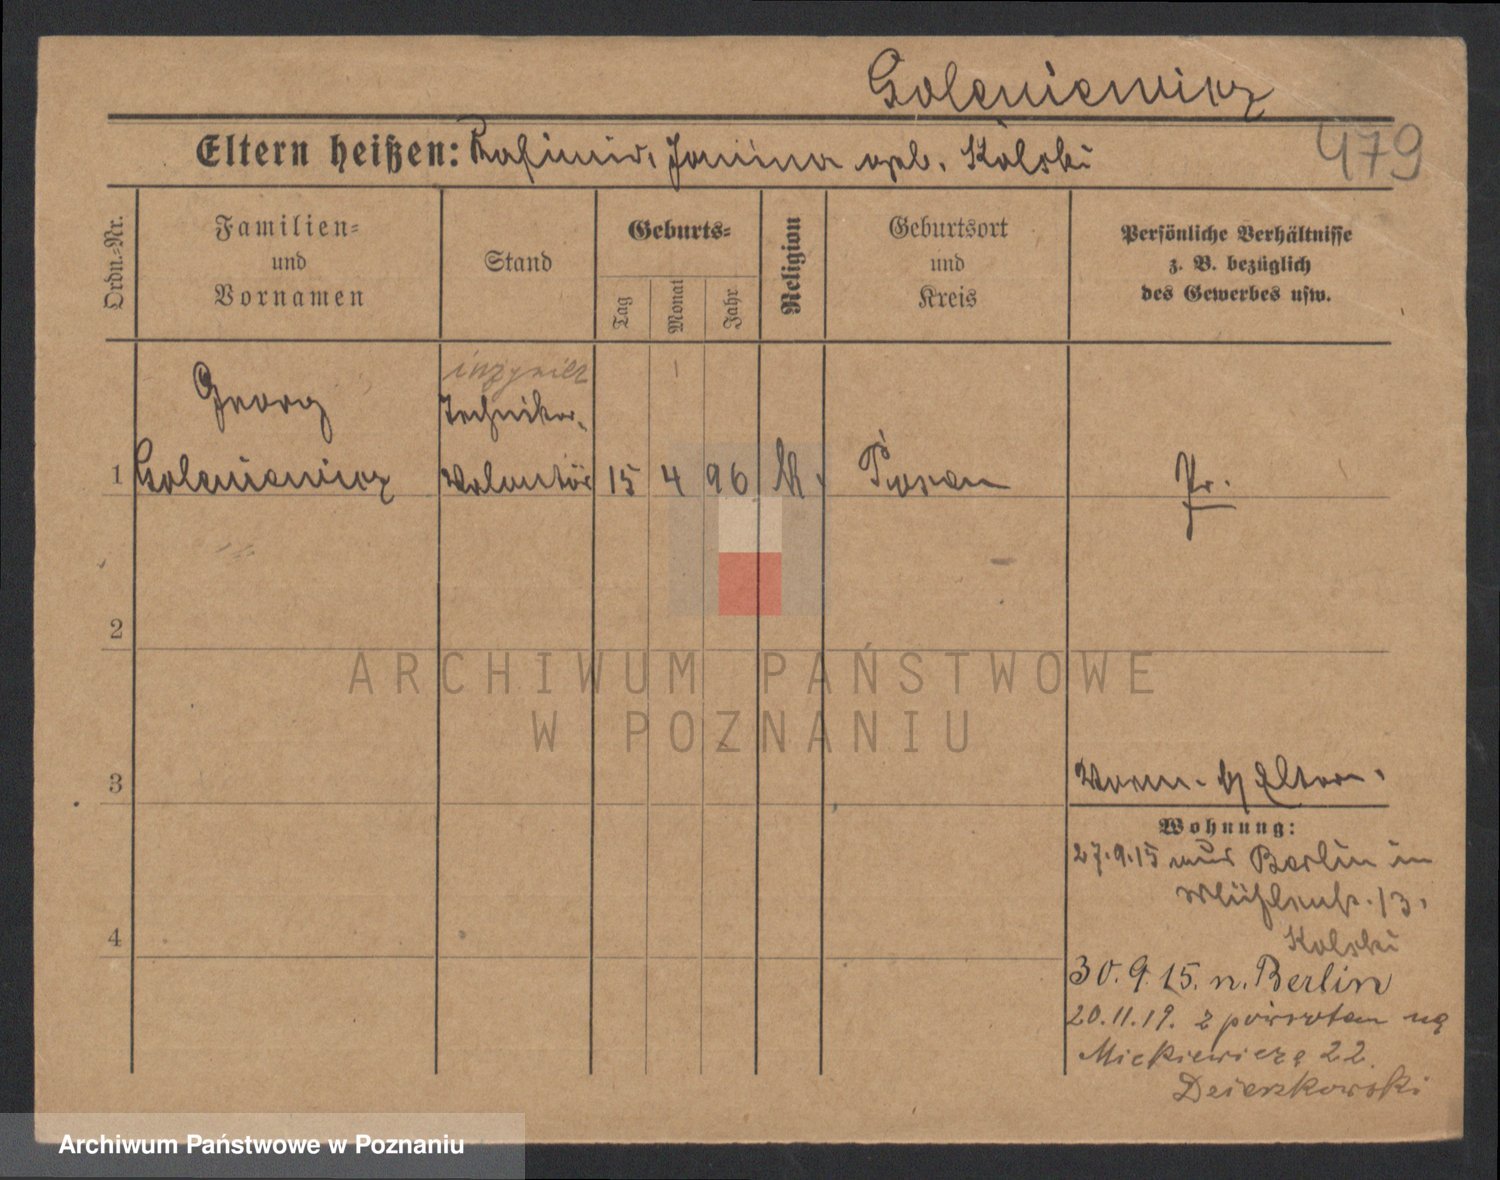 Goleniewicz
479
Eltern heißen: Kasimir, Janina geb. Kolski
Ordn.-Nr.
Familien-
und
Vornamen
Stand
Geburts-
Tag
Monat
Jahr
Religion
Geburtsort
und
Kreis
Persönliche Verhältnisse
z. B. bezüglich
des Gewerbes usw.
inżynier
Georg
Techniker-
1 Goleniewicz Volontär 15 4 96 k. Posen Pr.
2
ARCHIWUM PAŃSTWOWE
W POZNANIU
3
Eltern.
Wohnung:
27.9.15 aus Berlin in
Mühlenstr. 13.
Kolski
4
30.9.15. n. Berlin
20.11.19. z powrotem na
Mickiewicza 22.
Dzierzkowski
Archiwum Państwowe w Poznaniu